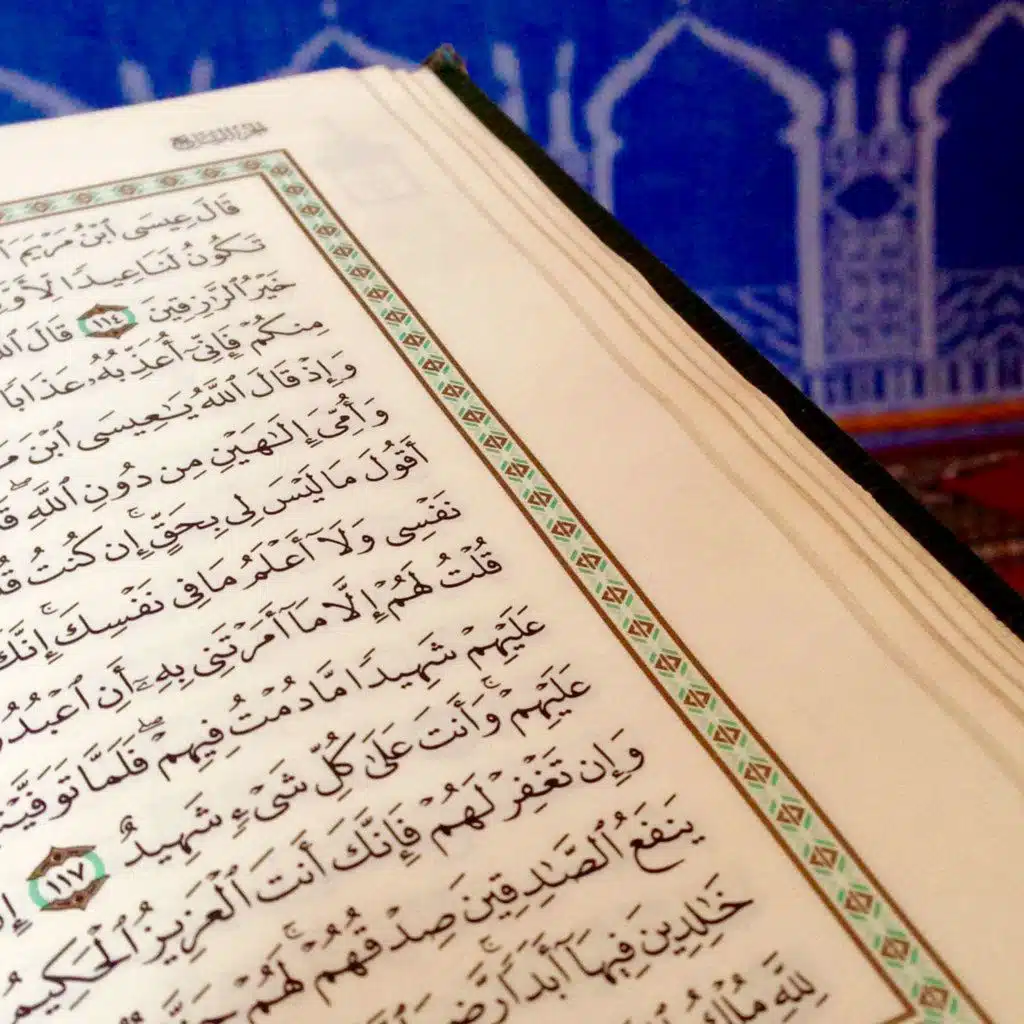 قَالَ عِيسَى ٱبْنُ مَرْيَمَ
تَكُونُ لَنَا عِيدًا لِّأَوَّ
خَيْرُ ٱلرَّٰزِقِينَ ١١٤ قَالَ ٱللَّ
مِنكُمْ فَإِنِّىٓ أُعَذِّبُهُۥ عَذَابًا
وَإِذْ قَالَ ٱللَّهُ يَٰعِيسَى ٱبْنَ مَرْ
وَأُمِّىَ إِلَٰهَيْنِ مِن دُونِ ٱللَّهِۖ قَ
أَقُولَ مَا لَيْسَ لِى بِحَقٍّۚ إِن كُنتُ قُ
نَفْسِى وَلَآ أَعْلَمُ مَا فِى نَفْسِكَۚ إِنَّكَ
قُلْتُ لَهُمْ إِلَّا مَآ أَمَرْتَنِى بِهِۦٓ أَنِ ٱعْبُدُو
عَلَيْهِمْ شَهِيدًا مَّا دُمْتُ فِيهِمْۖ فَلَمَّا تَوَفَّيْتَ
عَلَيْهِمْۚ وَأَنتَ عَلَىٰ كُلِّ شَىْءٍ شَهِيدٌ ١١٧ إِ
وَإِن تَغْفِرْ لَهُمْ فَإِنَّكَ أَنتَ ٱلْعَزِيزُ ٱلْحَكِيمُ
يَنفَعُ ٱلصَّٰدِقِينَ صِدْقُهُمْۚ لَهُمْ جَنَّ
خَٰلِدِينَ فِيهَآ أَبَدًاۚ رَّضِىَ
لِلَّهِ مُلْكُ